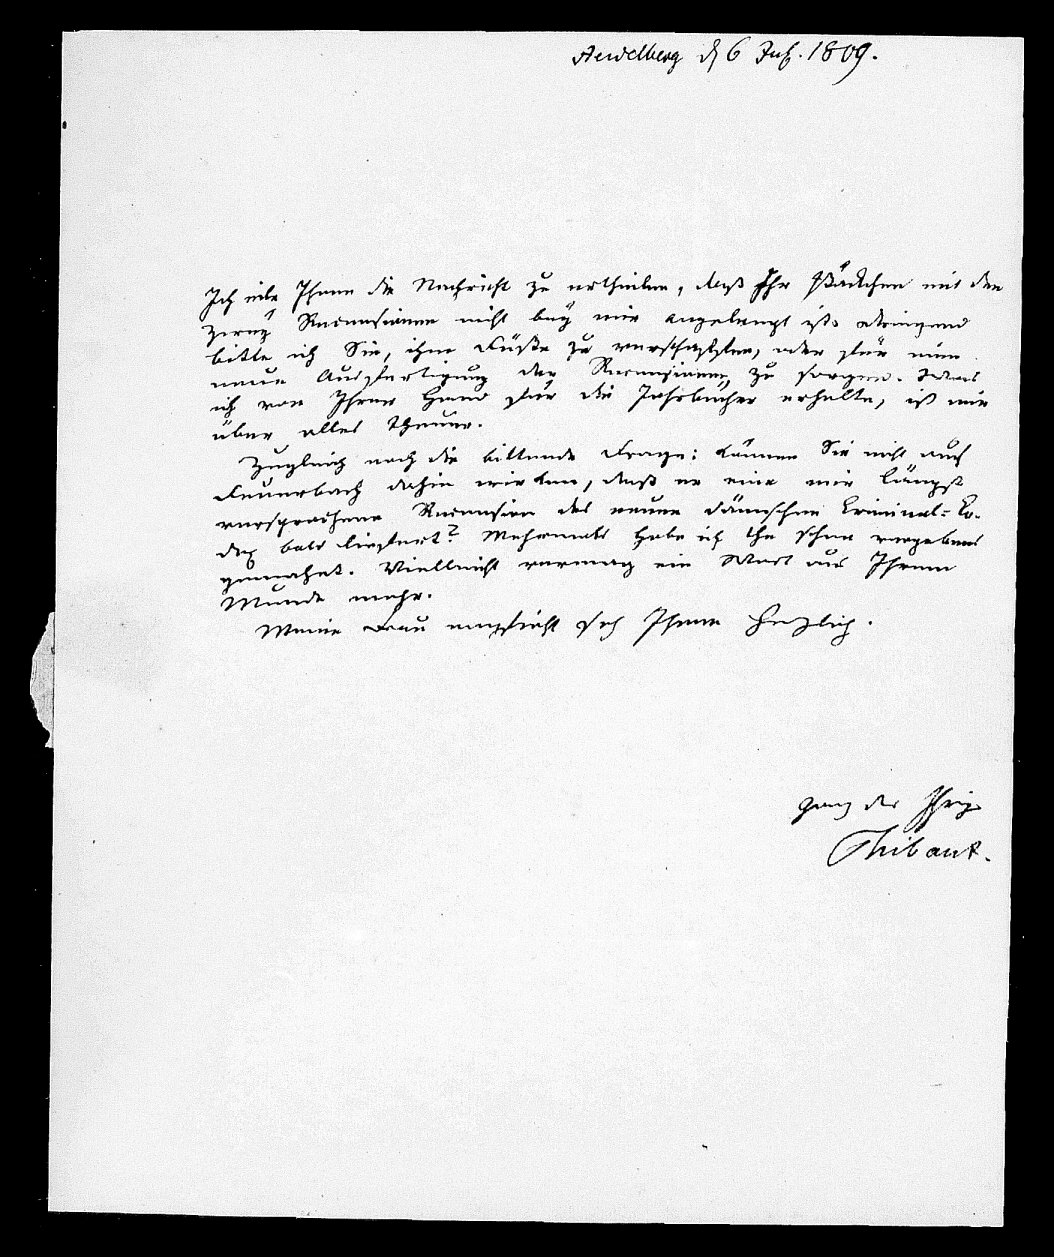 Heidelberg d 6 Jul. 1809.
Ich eile Ihnen die Nachricht zu ertheilen, daß Ihr Päckchen mit den
zwey Recensionen nicht bey mir angelangt ist. Dringend
bitte ich Sie, ihm Füße zu verschaffen, oder für eine
neue Ausfertigung der Recensionen zu sorgen. Etwas
ich von Ihrer Hand für die Jahrbücher erhalte, ist mir
über alles theuer.
Zugleich noch die bittende Frage: können Sie nicht auch
Feuerbach dahin wirken, daß er eine mir längst
versprochene Recension des neuen dänischen Criminal-Co-
dex bald liefert? Mehrmals habe ich ihn schon vergebens
gemahnt. Vielleicht vermag ein Wort aus Ihrem
Munde mehr.
Meine Frau empfiehlt sich Ihnen herzlich.
ganz der Ihrige
Thibaut.